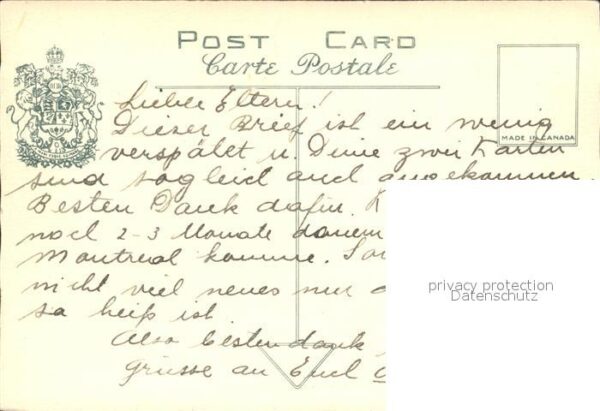 POST CARD
Carte Postale
MADE IN CANADA
Lieber Eltern!
Dieser Brief ist ein wenig
verspälet u. Deine zwei Karten
sind sogleich auch angekommen.
Besten Dank dafür.
noch 2-3 Monate dauern
Montreal komme.
nicht viel neues nur
so heiß ist
Also besten dank
Grüsse an Euch
privacy protection
Datenschutz